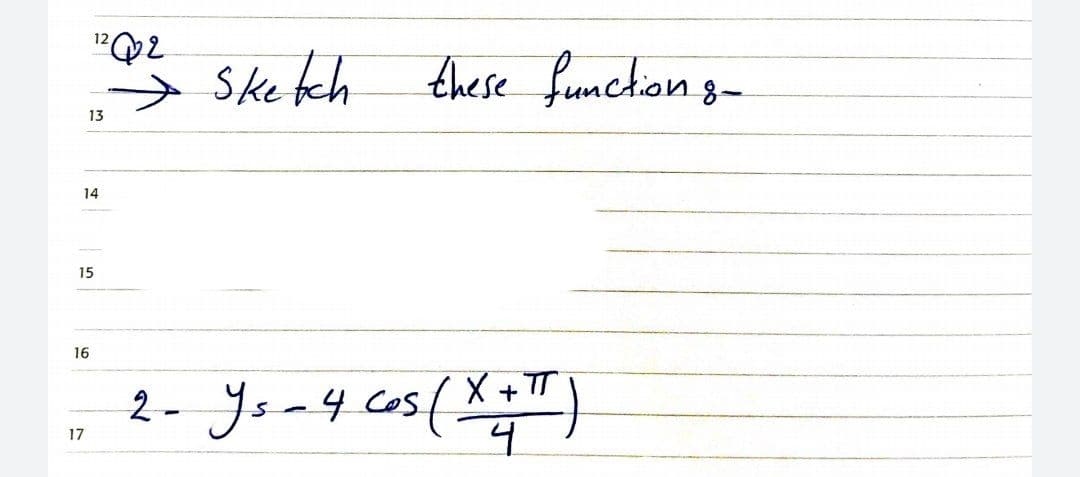 12 Q2
→ Sketch these function 8-
13
14
15
16
2- ys -4 cos(X+π/4)
17